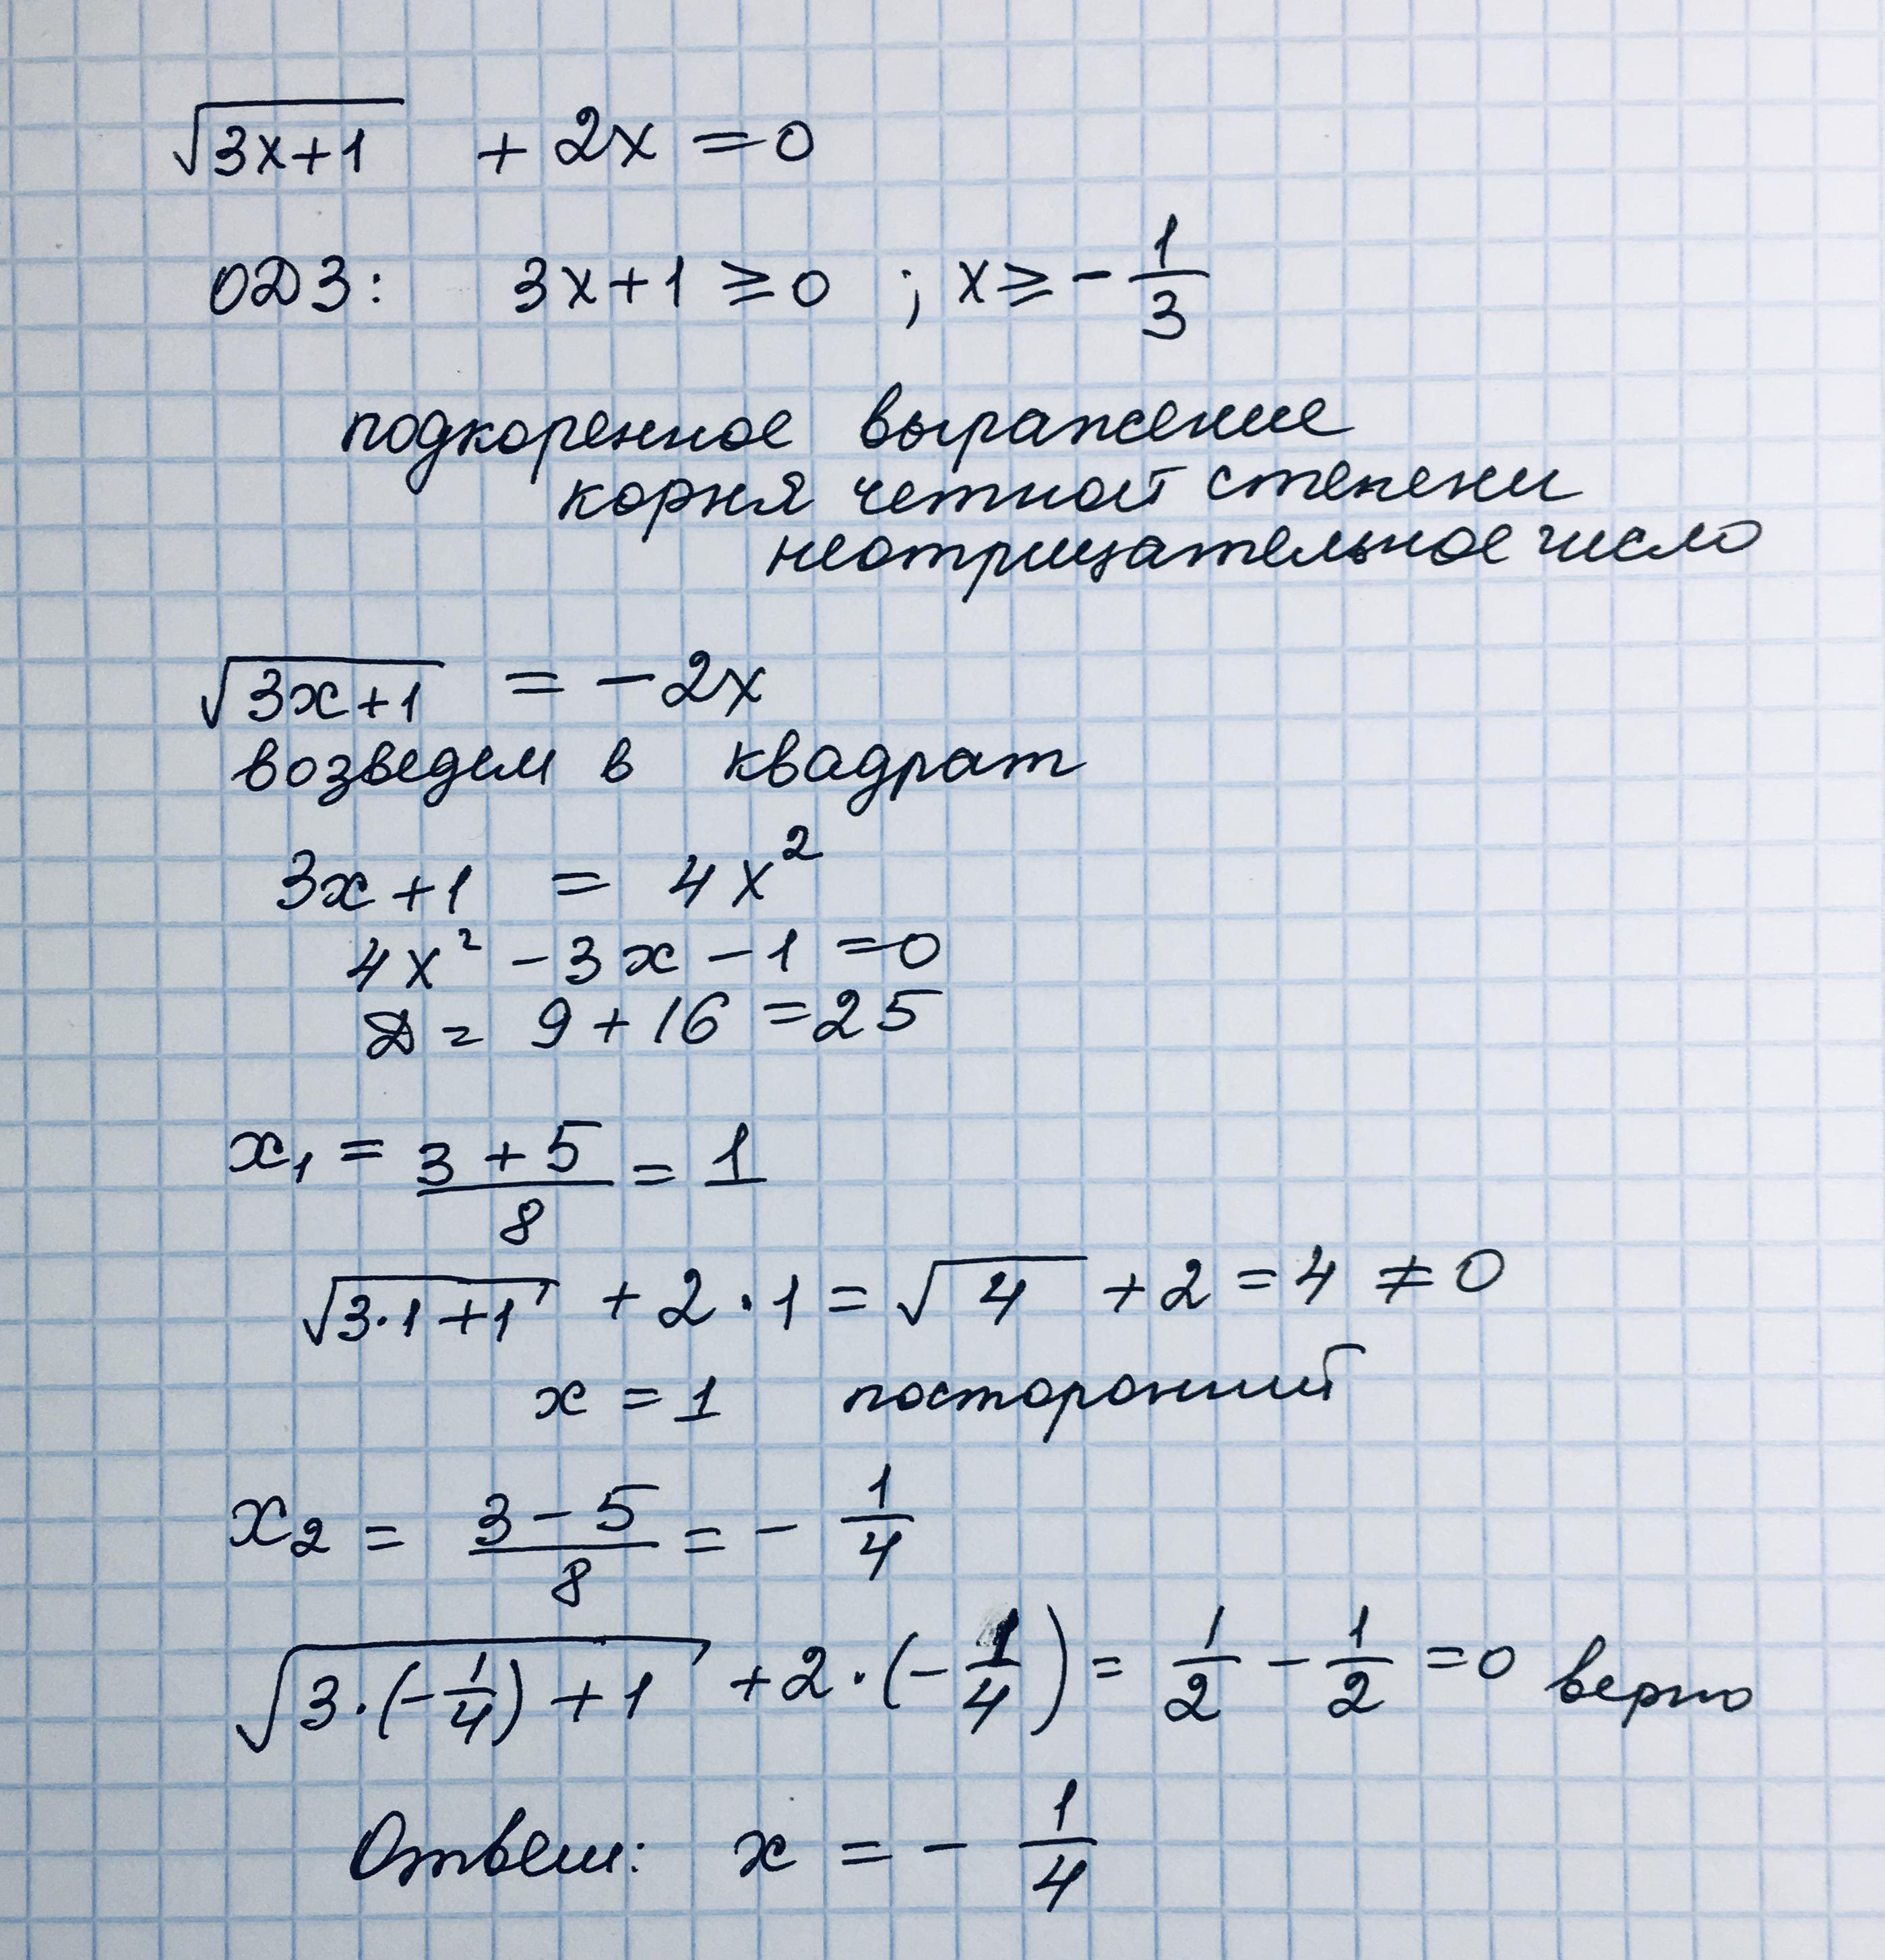 √(3x+1) + 2x = 0
ОДЗ: 3x+1 ≥ 0 ; x ≥ - 1/3
подкоренное выражение
корня четной степени
неотрицательное число
√(3x+1) = -2x
возведем в квадрат
3x+1 = 4x²
4x² - 3x - 1 = 0
D = 9 + 16 = 25
x₁ = (3+5)/8 = 1
√(3·1+1) + 2·1 = √4 + 2 = 4 ≠ 0
x = 1 посторонний
x₂ = (3-5)/8 = - 1/4
√(3·(-1/4)+1) + 2·(-1/4) = 1/2 - 1/2 = 0 верно
Ответ: x = - 1/4